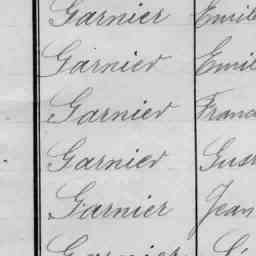 Garnier Emil
Garnier Emil
Garnier Franc
Garnier Gust
Garnier Jean
Garnier